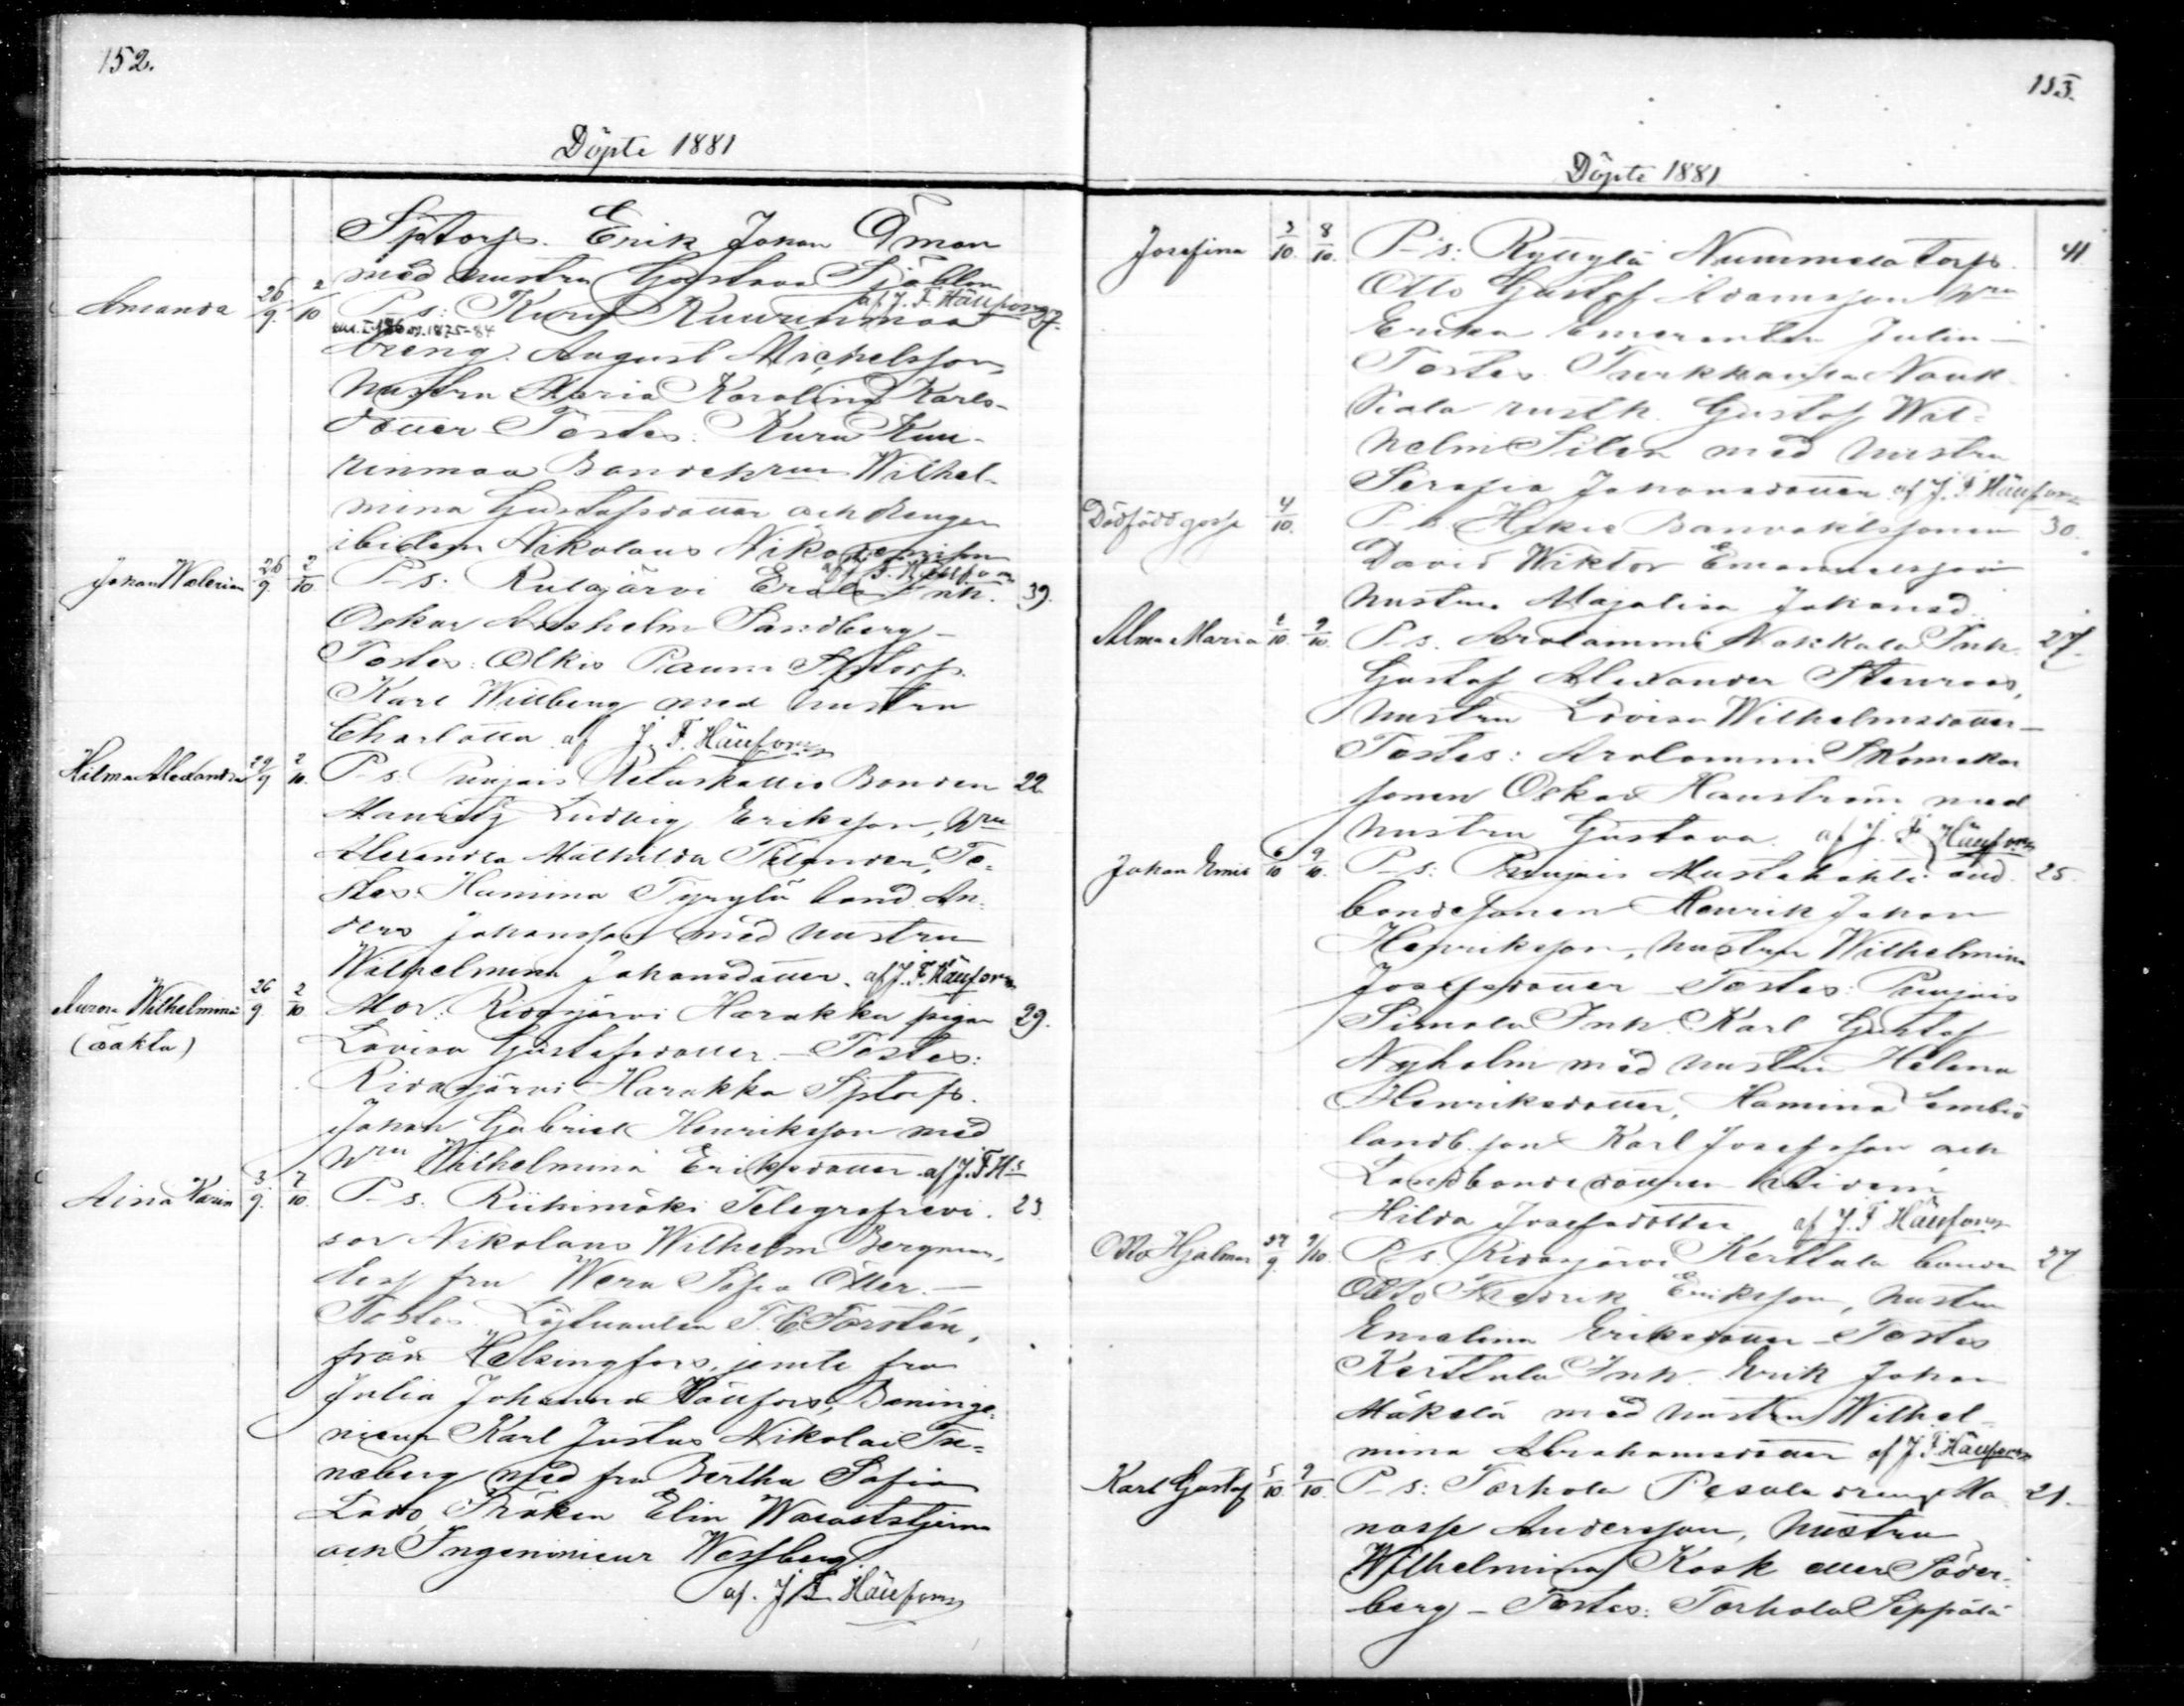 152.
Döpte 1881
Sptorp. Erik Johan Öman
med hustru Gustava Sjöblom
af J. F. Häufors
Amanda 26/9 2/10 P-s: Kuru Kuurinmaa 27.
1875-84
dreng. August Michelsson,
hustru Maria Karolina Karls-
dotter Testes: Kuru Kuu-
rinmaa Bondehru Wilhel-
mina Gustafsdotter och drengen
ibidem Nikolaus
Johan Walerian 26/9 2/10 P-s. Ridasjärvi Erola Inh. 39.
Oskar Anshelm Sandberg -
Testes: Olkis Sptorp.
Karl Willberg med hustru
Charlotta af J. F. Häufors
Hilma Alexandra 29/9 2/10. P-s. Punjais Bonden 22
Mauritz Ludvig Eriksson, hru
Alexandra Mathilda Te-
stes Hamina Tyrylä land. An-
ders Johansson med hustru
Wilhelmina Johansdotter. af J. F. Häufors
Aurora Wilhelmina 26/9 2/10 Mor: Ridasjärvi Harakka pigan 29.
(oäkta) Lovisa Gustafsdotter. - Testes:
Ridasjärvi Harakka Sptorp.
Johan Gabriel Henriksson med
hru Wilhelmina Eriksdotter af J. F. Hs
Aina Karin 3/9. 7/10. P-s. Riihimäki Telegrafrevi- 23
sor Nikolaus Wilhelm Bergman,
dess fru Wera Sofia Etter. -
Testes Löjtnanten T. E. Forstén,
från Helsingfors, jemte fru
Julia Johanna Häufors, Baninge-
nieur Karl Justus Nikolai Tu-
neberg med fru Bertha Sofia
Lado, Fröken Elin Wasastjerna
och Ingenieur Wessberg.
af. J. F. Häufors
153.
Döpte 1881
Josefina 3/10. 8/10. P-s: Ryttylä Nummela torp. 41
Otto Gustaf Adamsson hru
Erika Emerentia Julin -
Testes Turkhauta Nauk-
siala rusth. Gustaf Wil-
helm Silen med hustru
Serafia Johansdotter af J. F. Häufors
Dödfödd gosse 4/10. P-s. Hikiä Banvaktssonen 30.
David Wiktor Emanuelsson
hustru Majalisa Johansd.
Alma Maria 2/10. 9/10. P-s. Arolammi Nakkala Inh. 27.
Gustaf Alexander Stenroos,
hustru Lovisa Wilhelmsdotter -
Testes: Arolammi Skomakar
sonen Oskar Hauström med
hustru Gustava. af J. F. Häufors
Johan Emil 6/10 9/10. P-s: Punjais Mustalahti 25.
bondesonen Henrik Johan
Henriksson, hustru Wilhelmina
Josefsdotter - Testes: Punjais
Simola Inh. Karl Gustaf
Nyholm med hustru Helena
Henriksdotter, Hamina
landb. son Karl Josefsson och
Landbondedottren ibidem
Hilda Josefsdotter af J. F. Häufors
Otto Hjalmar 27/9. 9/10. P-s. Ridasjärvi Kerttula bonden 27
Otto Fredrik Eriksson, hustru
Emelina Eriksdotter - Testes
Kerttula Inh. Erik Johan
Mäkelä med hustru Wilhel-
mina Abrahamsdotter af J. F. Häufors
Karl Gustaf 5/10. 9/10. P-s: Torhola Pesula dreng Ma- 21.
nasse Andersson, hustru
Wilhelmina Kosk eller Söder-
berg - Testes: Torhola Seppälä